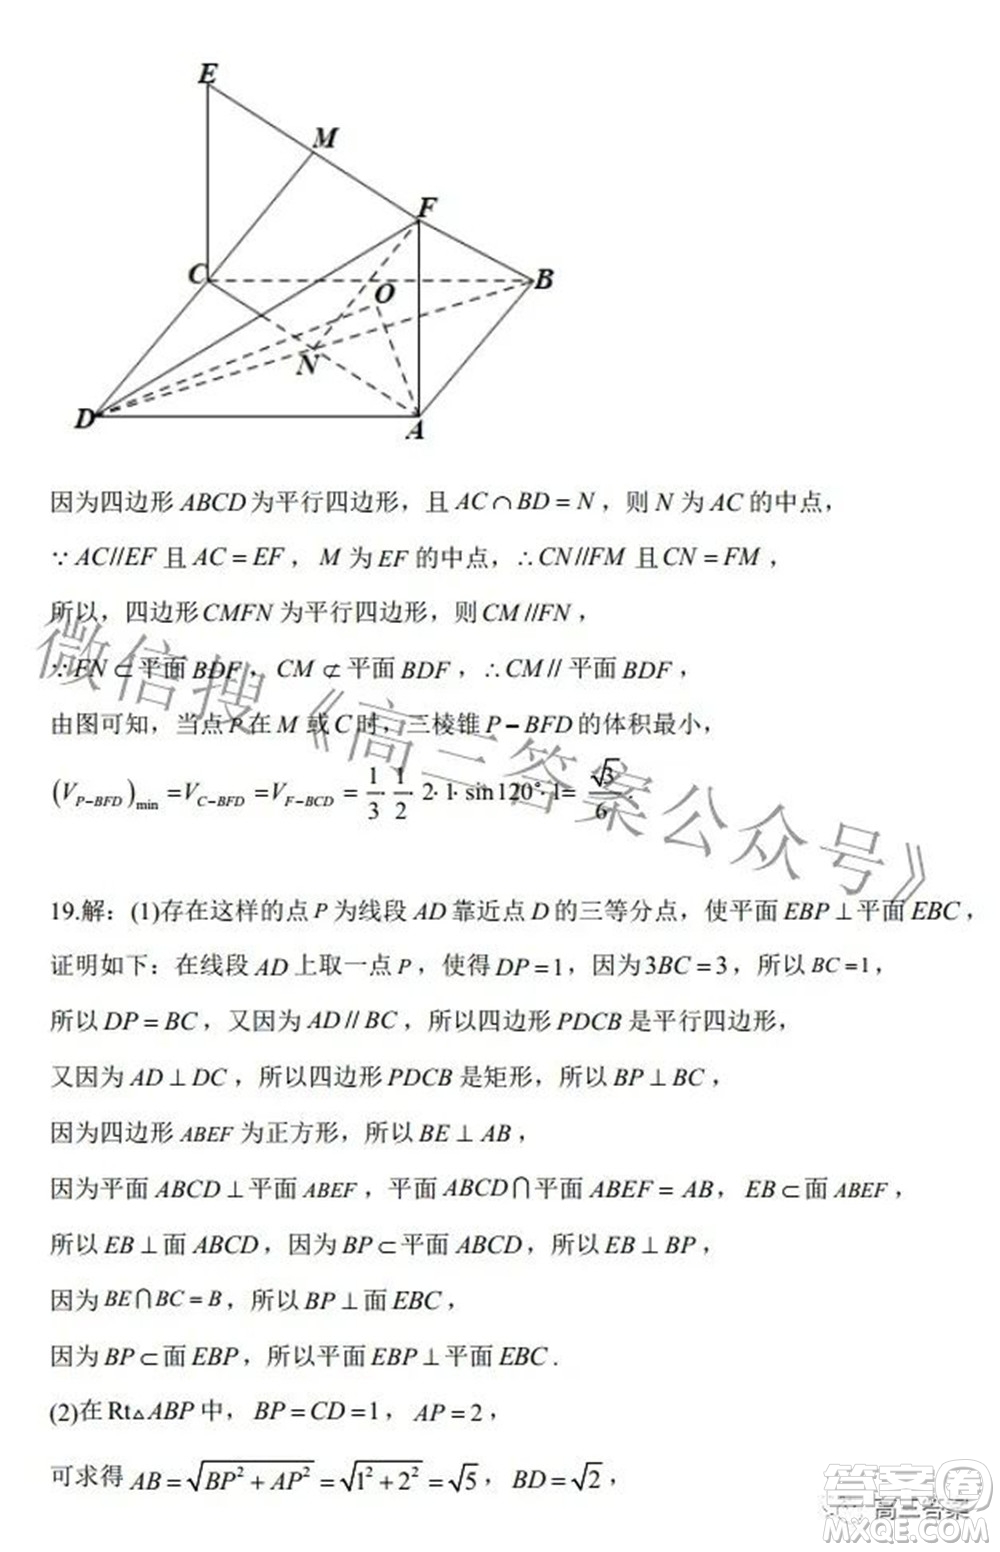 E
M
F
C
B
O
N
D
A
因为四边形 ABCD 为平行四边形，且 AC∩BD=N，则 N 为 AC 的中点，
∵AC//EF 且 AC=EF，M 为 EF 的中点，∴CN//FM 且 CN=FM，
所以，四边形 CMFN 为平行四边形，则 CM//FN，
∵FN⊂平面 BDF，CM⊄平面 BDF，∴CM//平面 BDF，
由图可知，当点 P 在 M 或 C 时，三棱锥 P−BFD 的体积最小，
(V_{P−BFD})_{min}=V_{C−BFD}=V_{F−BCD}=1/3·1/2·2·1·sin120°·1=√3/6.
19.解：(1)存在这样的点 P 为线段 AD 靠近点 D 的三等分点，使平面 EBP⊥平面 EBC，
证明如下：在线段 AD 上取一点 P，使得 DP=1，因为 3BC=3，所以 BC=1，
所以 DP=BC，又因为 AD//BC，所以四边形 PDCB 是平行四边形，
又因为 AD⊥DC，所以四边形 PDCB 是矩形，所以 BP⊥BC，
因为四边形 ABEF 为正方形，所以 BE⊥AB，
因为平面 ABCD⊥平面 ABEF，平面 ABCD∩平面 ABEF=AB，EB⊂面 ABEF，
所以 EB⊥面 ABCD，因为 BP⊂平面 ABCD，所以 EB⊥BP，
因为 BE∩BC=B，所以 BP⊥面 EBC，
因为 BP⊂面 EBP，所以平面 EBP⊥平面 EBC.
(2)在 Rt△ABP 中，BP=CD=1，AP=2，
可求得 AB=√(BP²+AP²)=√(1²+2²)=√5，BD=√2，
微信搜《高三答案公众号》
高三答案
答案卷
MXQE.COM